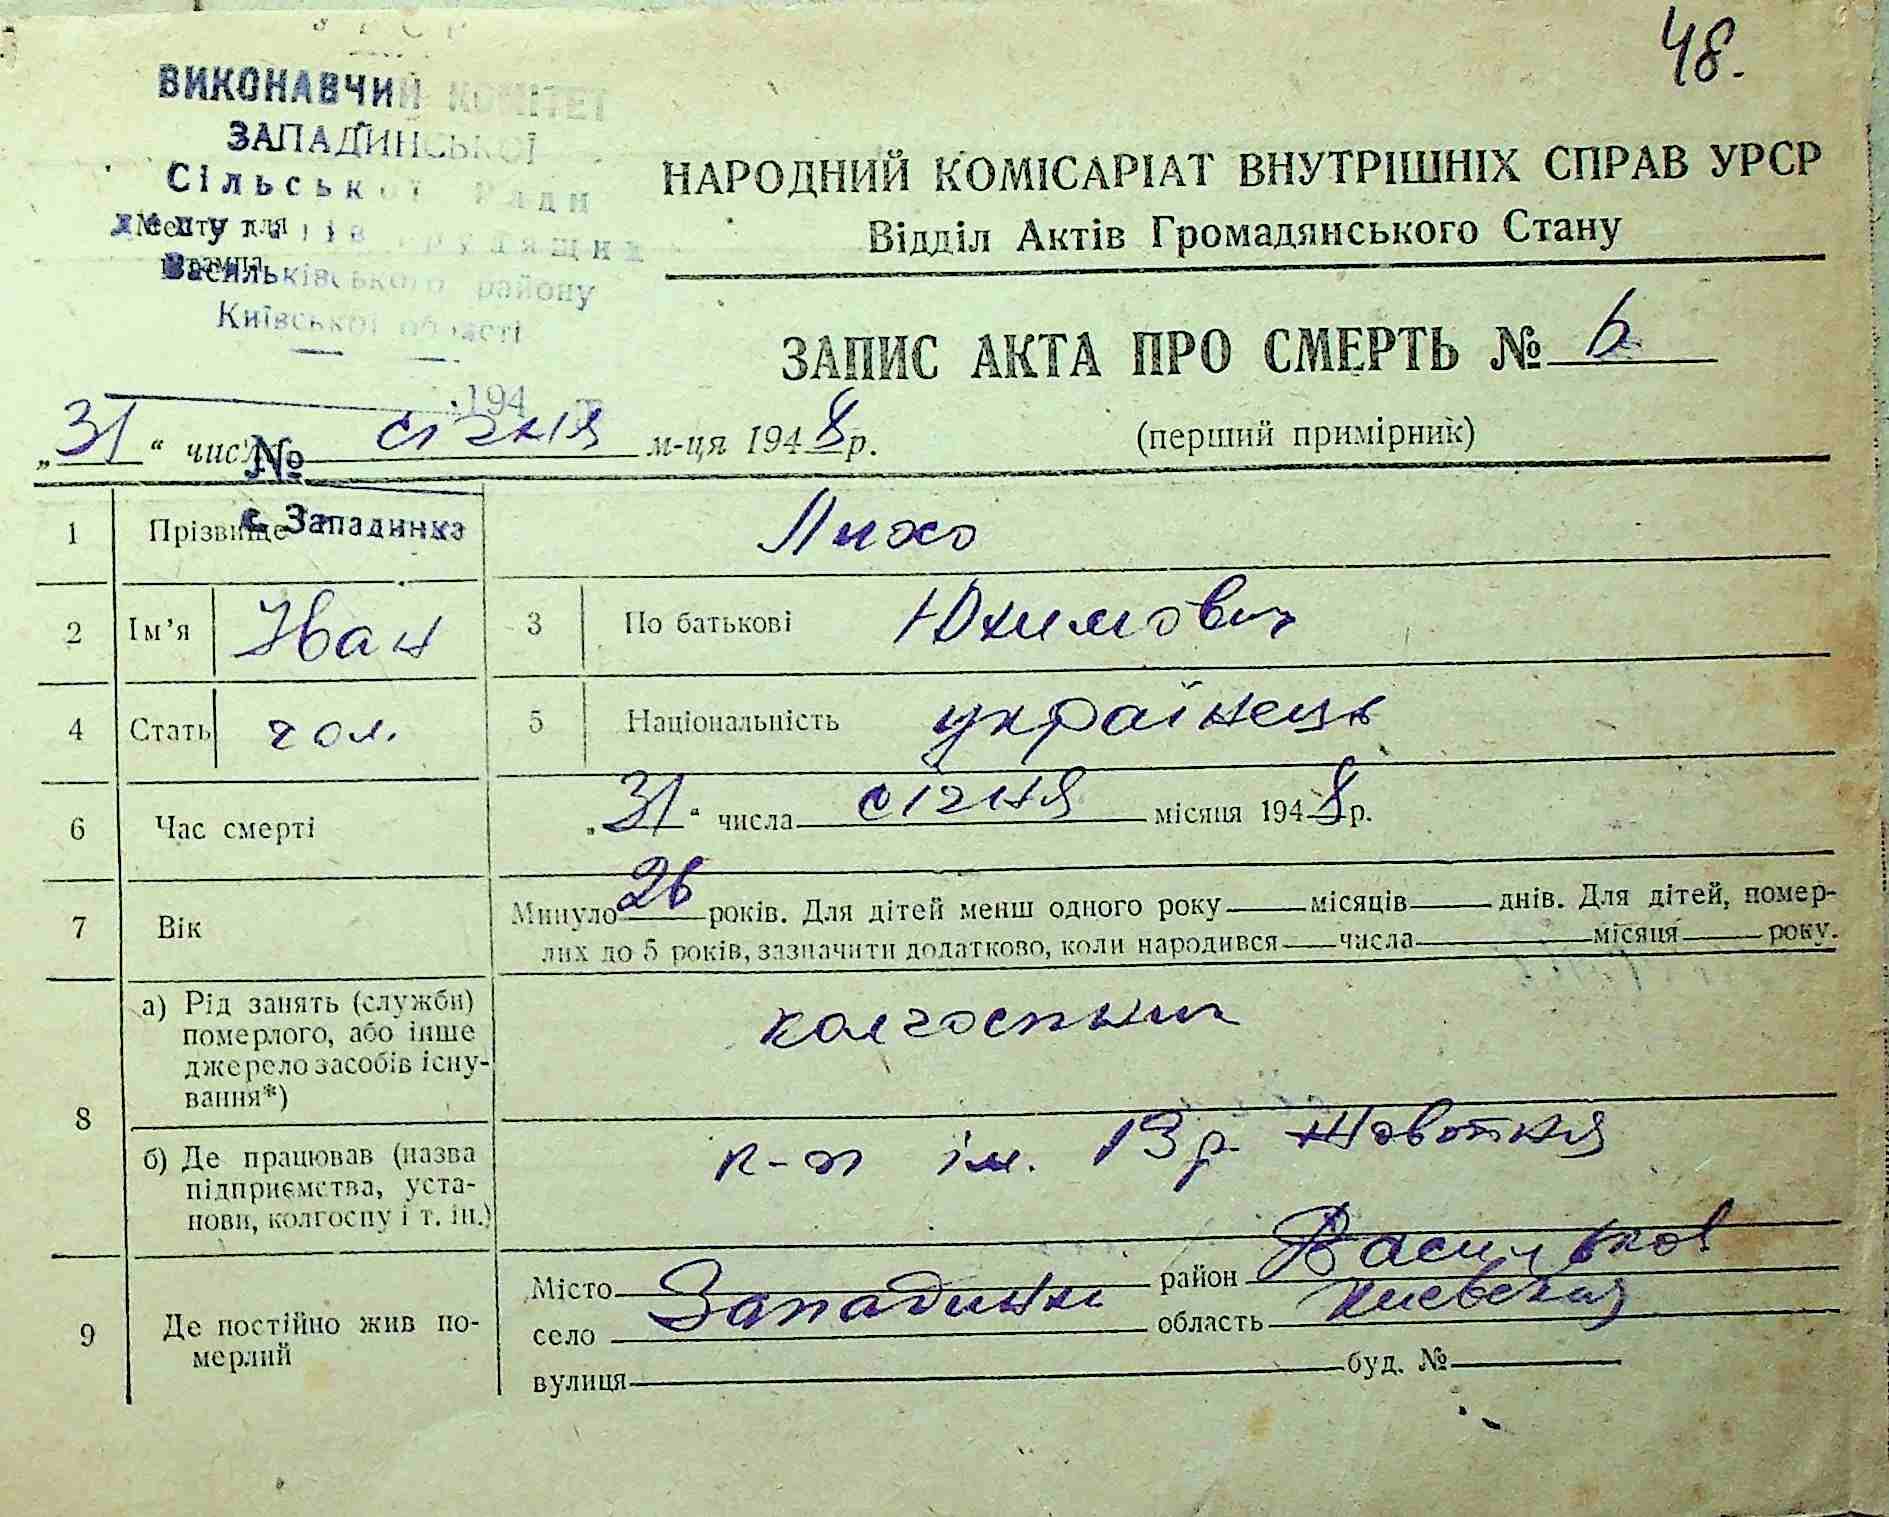 48.
УРСР
ВИКОНАВЧИЙ КОМІТЕТ
ЗАПАДИНСЬКОЇ
Сільської Ради
депутатів трудящих
Васильківського району
Київської області
194 р.
№
с. Западинка
Місце для
штампа
НАРОДНИЙ КОМІСАРІАТ ВНУТРІШНІХ СПРАВ УРСР
Відділ Актів Громадянського Стану
ЗАПИС АКТА ПРО СМЕРТЬ № 6
„31“ числа січня м-ця 1948 р.
(перший примірник)
1 Прізвище Лихо
2 Ім’я Іван 3 По батькові Юхимович
4 Стать чол. 5 Національність українець
6 Час смерті „31“ числа січня місяця 1948 р.
7 Вік Минуло 26 років. Для дітей менш одного року місяців днів. Для дітей, помер-
лих до 5 років, зазначити додатково, коли народився числа місяця року.
8 а) Рід занять (служби)
померлого, або інше
джерело засобів існу-
вання*)
колгоспник
б) Де працював (назва
підприємства, уста-
нови, колгоспу і т. ін.)
к-п ім. 13 р. Жовотня
9 Де постійно жив по-
мерлий
Місто район Васильков
село Западинка область Киевская
вулиця буд. №